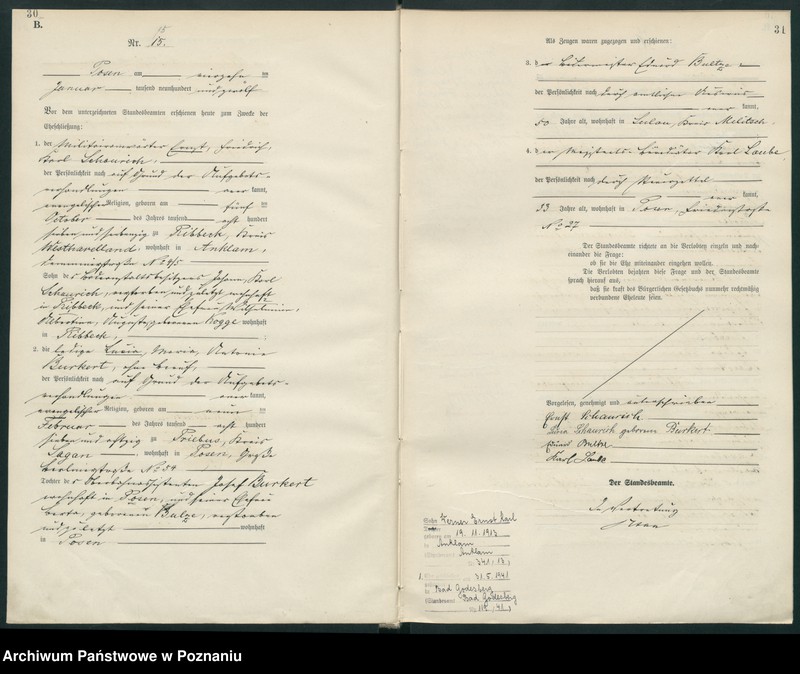 30
B.
Nr. 15.
Posen am vierzehn ten
Januar tausend neunhundert und zwölf
Vor dem unterzeichneten Standesbeamten erschienen heute zum Zwecke der
Eheschließung:
1. der Militäranwärter Ernst, Friedrich,
Karl Schaurich,
der Persönlichkeit nach auf Grund der Aufgebots-
verhandlungen kannt,
evangelischer Religion, geboren am fünf ten
October des Jahres tausend acht hundert
sieben und siebenzig zu Ribbeck, Kreis
Westhavelland, wohnhaft in Anklam,
Sohn des Karl
Schaurich, verstorben und zuletzt wohnhaft
in Ribbeck, und seiner Ehefrau Wilhelmine,
Albertine, Auguste, geborenen Rogge wohnhaft
in Ribbeck.
2. die ledige Lucia, Maria, Antonie
Burkert, ohne Beruf,
der Persönlichkeit nach auf Grund der Aufgebots-
verhandlungen kannt,
evangelischer Religion, geboren am neun ten
Februar des Jahres tausend acht hundert
sieben und achtzig zu Priebus, Kreis
Sagan, wohnhaft in Posen, Große
Berlinerstraße No 54
Tochter des Josef Burkert
wohnhaft in Posen, und seiner Ehefrau
Berta, geborenen Bulze, verstorben
und zuletzt wohnhaft
in Posen
31
Als Zeugen waren zugezogen und erschienen:
3. der Eduard Bultze
der Persönlichkeit nach durch
kannt,
50 Jahre alt, wohnhaft in Sulau, Kreis Militsch.
4. der Karl Laube,
der Persönlichkeit nach durch
kannt,
53 Jahre alt, wohnhaft in Posen,
No 27
Der Standesbeamte richtete an die Verlobten einzeln und nach-
einander die Frage:
ob sie die Ehe miteinander eingehen wollen.
Die Verlobten bejahten diese Frage und der Standesbeamte
sprach hierauf aus,
daß sie kraft des Bürgerlichen Gesetzbuchs nunmehr rechtmäßig
verbundene Eheleute seien.
Vorgelesen, genehmigt und unterschrieben
Ernst Schaurich
Lucia Schaurich geborene Burkert
Eduard Bultze
Karl Laube
Der Standesbeamte.
In Vertretung
Sohn Werner Ernst Karl
geboren am 19. 11. 1913
in Anklam
Anklam
341/13
1. 31. 5. 1941
Bad Godesberg
Bad Godesberg
Archiwum Państwowe w Poznaniu